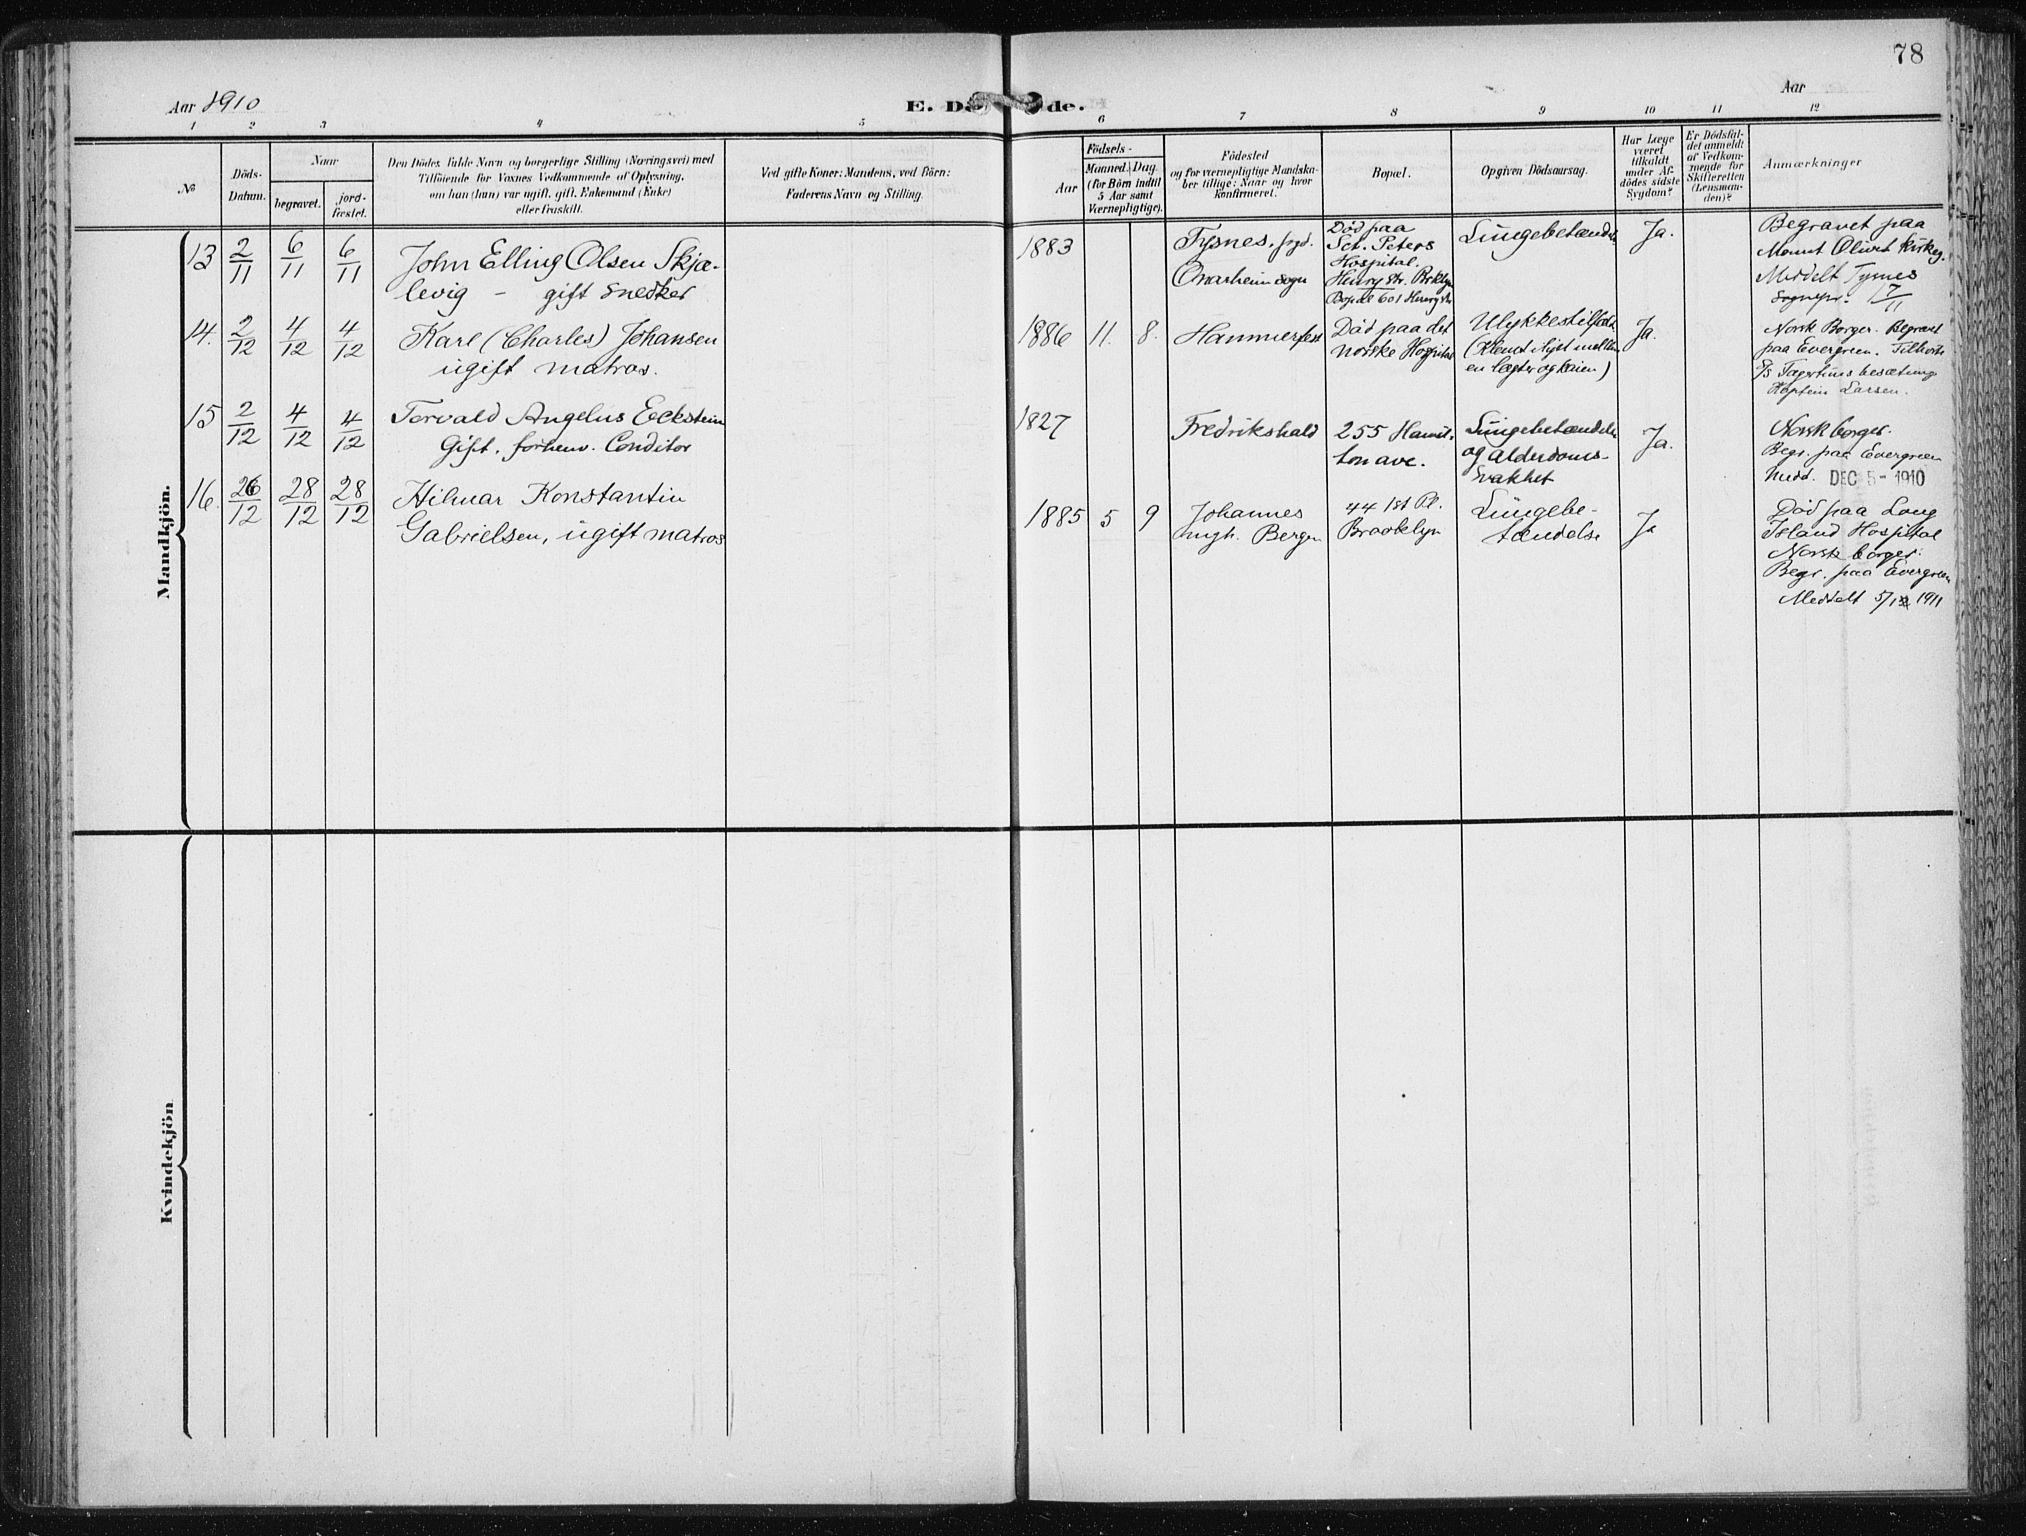 78
Aar 1910
E. Dö de.
Aar
1 2 3 4 5 6 7 8 9 10 11 12
No
Döds-
Datum.
Naar
begravet.
jord-
fæstet.
Den Dödes fulde Navn og borgerlige Stilling (Næringsvei) med
Tilföiende for Voxnes Vedkommende af Oplysning,
om han (hun) var ugift, gift, Enkemand (Enke)
eller fraskilt.
Ved gifte Koner: Mandens, ved Börn:
Faderens Navn og Stilling.
Födsels-
Aar
Maaned. Dag.
(for Börn indtil
5 Aar samt
Værnepligtige).
Födested
og for værnepligtige Mandska-
ber tillige: Naar og hvor
konfirmeret.
Bopæl.
Opgiven Dödsaarsag.
Har Læge
været
tilkaldt
under Af-
dödes sidste
Sygdom?
Er Dödsfal-
det anmeldt
af Vedkom-
mende for
Skifteretten
(Lensman-
den)?
Anmærkninger
Mandkjön.
13 2/11 6/11 6/11
John Elling Olsen Skjæ-
levig - gift snedker
1883
Tysnes, prgd.
Onarheim sogn
Död paa
Sct. Peters
Hospital.
Henry str. Brklyn
Bopæl 601 Henry str
Lungebetændelse
Ja.
Begravet paa
Mount Olivet Kirkeg.
Meddelt Tysnes
Sognepr. 7/11
14. 2/12 4/12 4/12
Karl (Charles) Johansen
ugift matros.
1886 11. 8.
Hammerfest
Död paa det
norske Hospital
Ulykkestilfælde
(Klemt ihjel mellem
en lægter og kaien)
Ja.
Norsk Borger. Begravet
paa Evergreen. Tilhørte
S/S besætning
Kaptein Larsen.
15 2/12 4/12 4/12
Torvald Angelus Eckstein
Gift, forhenv. Conditor
1827
Fredrikshald
255 Hamil-
ton ave.
Lungebetændelse
og Alderdoms-
svakhet
Ja.
Norsk borger.
Begr. paa Evergreen
medd. DEC 5- 1910
16. 26/12 28/12 28/12
Hilmar Konstantin
Gabrielsen, ugift matros
1885 5 9
Johannes
mgh. Bergen
44 1st Pl.
Brooklyn
Lungebe-
tændelse
Ja
Död paa Long
Island Hospital
Norsk borger.
Begr. paa Evergreen
Meddelt 5/1 1911
Kvindekjön